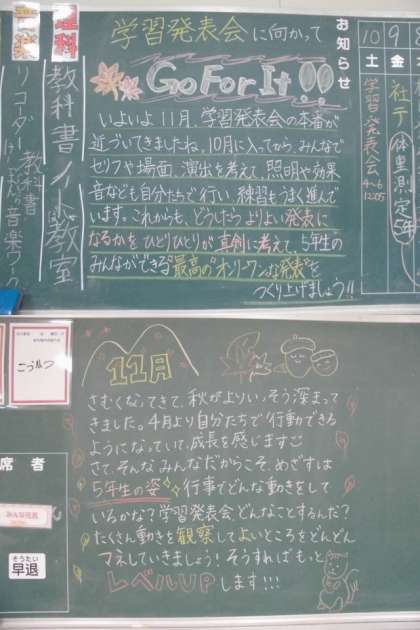 お知らせ
学習発表会に向かって
Go For It!!
いよいよ11月、学習発表会の本番が
近づいてきましたね。10月に入ってから、みんなで
セリフや場面、演出を考えて、照明や効果
音なども自分たちで行い、練習もうまく進んで
います。これからも、どうしたらよりよい発表に
なるかをひとりひとりが真剣に考えて、5年生の
みんなができる"最高の"オンリーワンな発表"を
つくり上げましょう!!
10
土
学習発表会
9
金
社
テ
体重測定
5年
8
理科
教科書
教室
リコーダー
教科書
音楽
11月
さむくなってきて、秋がよりいっそう深まって
きました。4月より自分たちで行動できる
ようになっていて、成長を感じます
さて、そんなみんなだからこそ、めざすは
5年生の姿 行事でどんな動きをして
いるかな?学習発表会どんなことするんだ?
たくさん動きを観察してよいところをどんどん
マネしていきましょう!そうすればもっと
レベルUPします!!!
こうたつ
席者
みんな元気
そうたい
早退